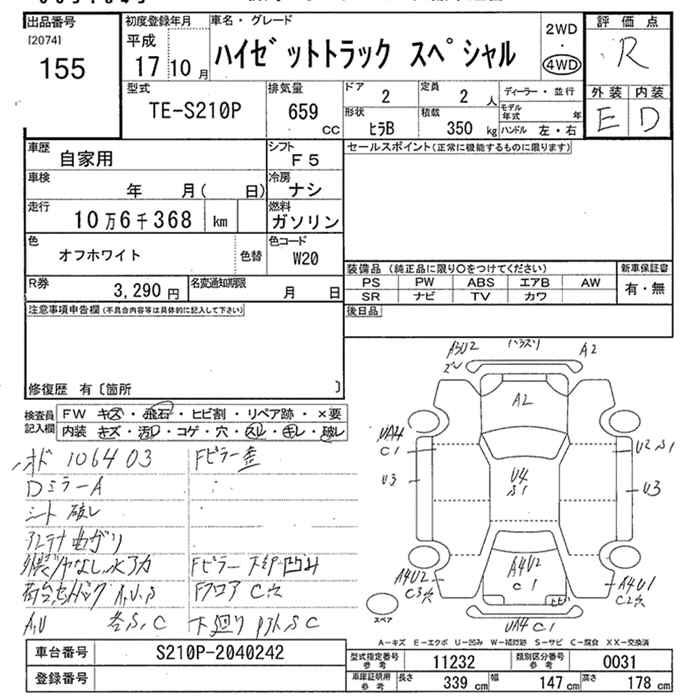 出品番号
[2074]
155
初度登録年月
平成
17 10 月
車名・グレード
ハイゼットトラック スペシャル
2WD
・
4WD
評価点
R
型式
TE-S210P
排気量
659
CC
ドア
2
定員
2 人
ディーラー・並行
モデル
年式 年
外装 内装
E D
形状
ヒラB
積載
350 kg
ハンドル 左・右
車歴
自家用
シフト
F5
セールスポイント(正常に機能するものに限ります)
車検
年 月( 日)
冷房
ナシ
走行
10万6千368 km
燃料
ガソリン
色
オフホワイト
色替
色コード
W20
装備品 (純正品に限り○をつけてください)
新車保証書
PS PW ABS エアB AW
有・無
SR ナビ TV カワ
R券
3,290 円
名変通知期限
月 日
後日品
注意事項申告欄(不具合内容等は具体的に記入して下さい)
修復歴 有〔箇所 〕
検査員
記入欄
FW キズ・飛石・ヒビ割・リペア跡・×要
内装・キズ・汚れ・コゲ・穴・スレ・キレ・破レ
106403
Fピラー
DミラーA
シート 破レ
Fピラー 下部凹み
A,U,S
Fフロア C穴
A,U
各S,C
下廻り S C
A2
A2
UA4
C1
U2 S1
U3
U4
S1
U3
A4U2
C3穴
A4U2
C1
ヒビ
A4U1
C2穴
スペア
UA4 C1
A-キズ E-エクボ U-凹み W-補修跡 S-サビ C-腐食 XX-交換済
車台番号
S210P-2040242
登録番号
型式指定番号
参考
11232
類別区分番号
参考
0031
車庫証明用
参考
長さ
339 cm
幅
147 cm
高さ
178 cm